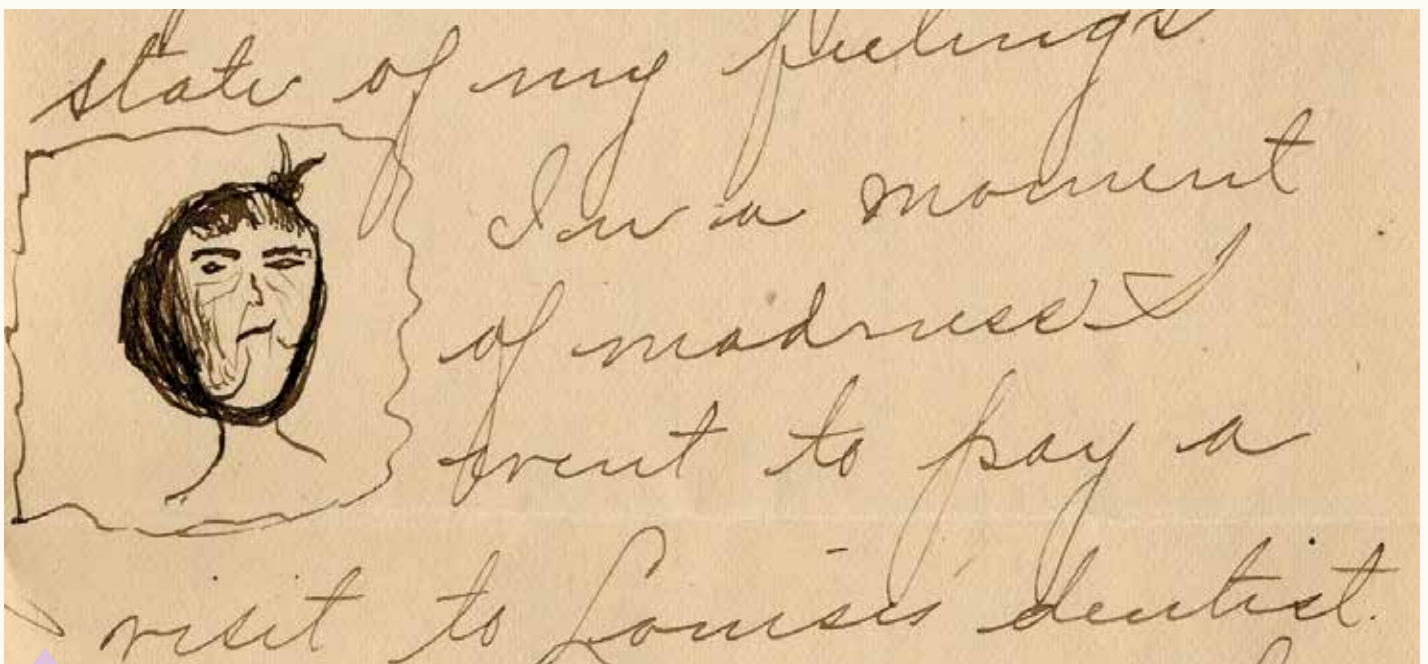 state of my feelings
In a moment
of madness I
went to pay a
visit to Louise's dentist.